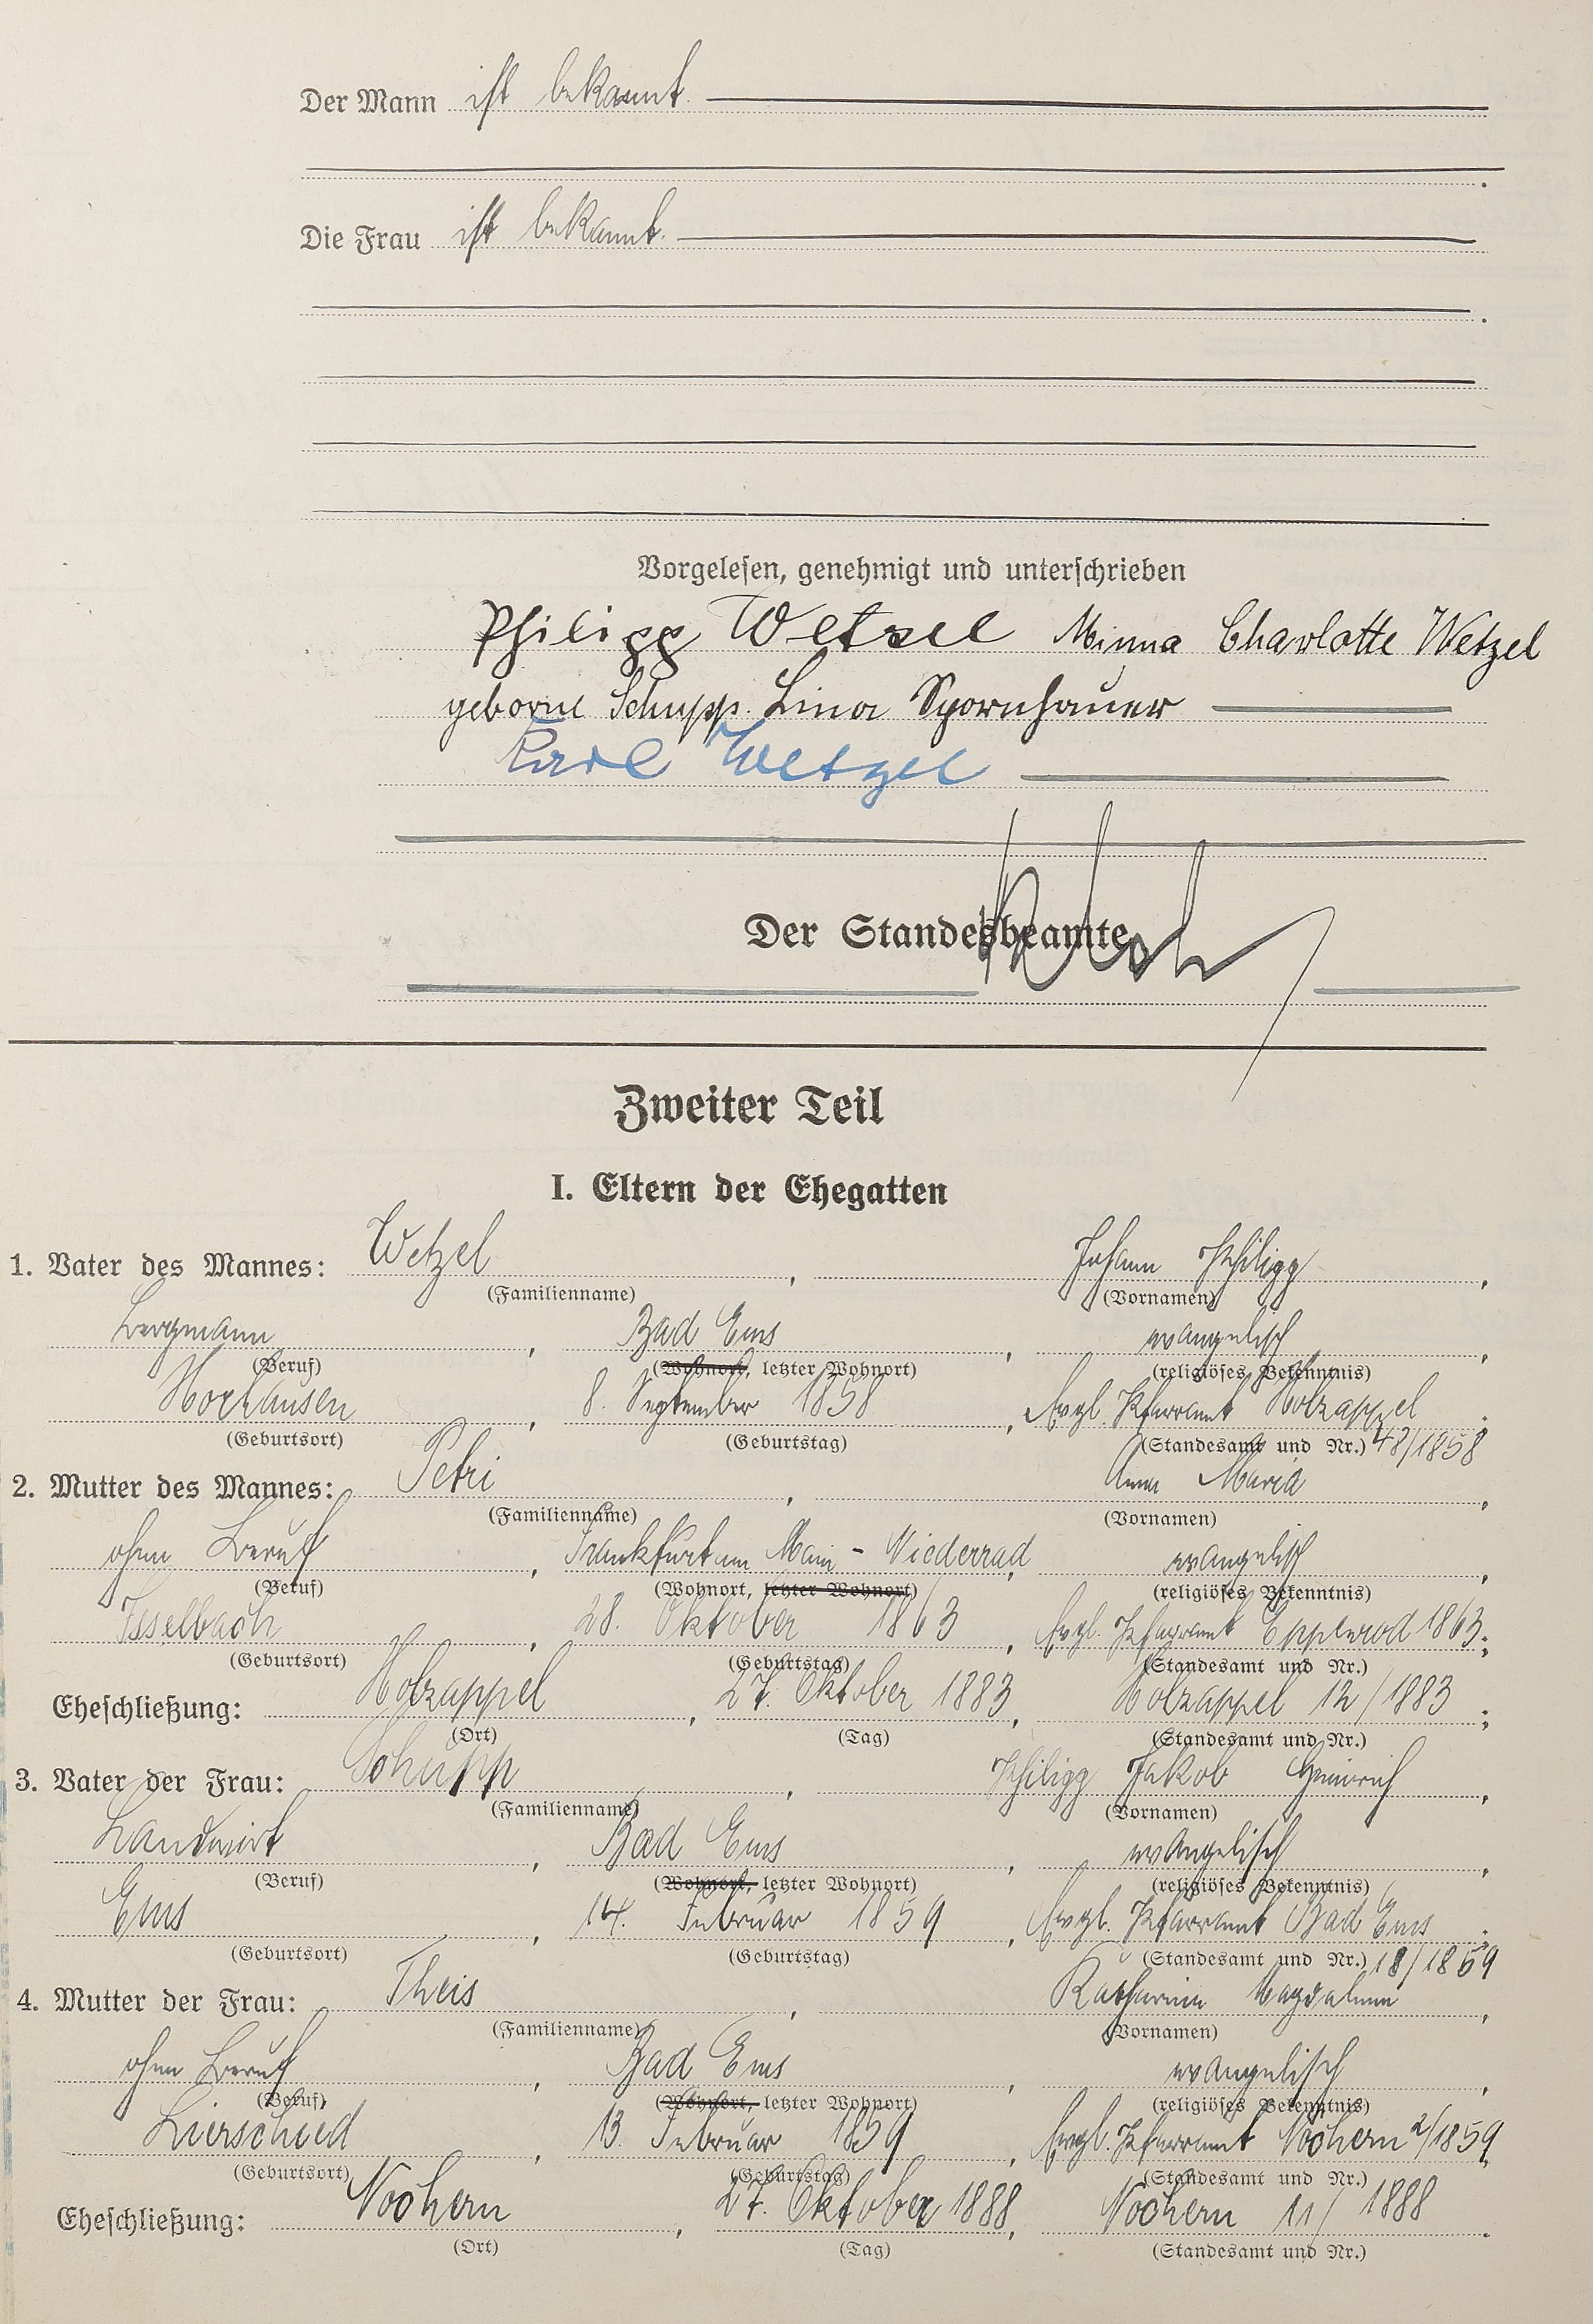 Der Mann ist bekannt.
Die Frau ist bekannt.
Vorgelesen, genehmigt und unterschrieben
Philipp Wetzel Minna Charlotte Wetzel
geborne Schupp. Lina Spornhauer
Karl Wetzel
Der Standesbeamte
Zweiter Teil
I. Eltern der Ehegatten
1. Vater des Mannes: Wetzel, Johann Philipp,
(Familienname) (Vornamen)
Bergmann, Bad Ems, evangelisch,
(Beruf) (Wohnort, letzter Wohnort) (religiöses Bekenntnis)
Horhausen, 8. September 1858, Evgl. Pfarramt Holzappel;
(Geburtsort) (Geburtstag) (Standesamt und Nr.) 48/1858
2. Mutter des Mannes: Petri, Anna Maria,
(Familienname) (Vornamen)
ohne Beruf, Frankfurt am Main - Niederrad, evangelisch,
(Beruf) (Wohnort, letzter Wohnort) (religiöses Bekenntnis)
Isselbach, 28. Oktober 1863, Evgl. Pfarramt Eppenrod 1863;
(Geburtsort) (Geburtstag) (Standesamt und Nr.)
Eheschließung: Holzappel, 27. Oktober 1883, Holzappel 12/1883;
(Ort) (Tag) (Standesamt und Nr.)
3. Vater der Frau: Schupp, Philipp Jakob Heinrich,
(Familienname) (Vornamen)
Landwirt, Bad Ems, evangelisch,
(Beruf) (Wohnort, letzter Wohnort) (religiöses Bekenntnis)
Ems, 14. Februar 1859, Evgl. Pfarramt Bad Ems;
(Geburtsort) (Geburtstag) (Standesamt und Nr.) 18/1859
4. Mutter der Frau: Theis, Katharina Magdalena,
(Familienname) (Vornamen)
ohne Beruf, Bad Ems, evangelisch,
(Beruf) (Wohnort, letzter Wohnort) (religiöses Bekenntnis)
Lierscheid, 13. Februar 1859, Evgl. Pfarramt Nochern 2/1859
(Geburtsort) (Geburtstag) (Standesamt und Nr.)
Eheschließung: Nochern, 27. Oktober 1888, Nochern 11/1888.
(Ort) (Tag) (Standesamt und Nr.)